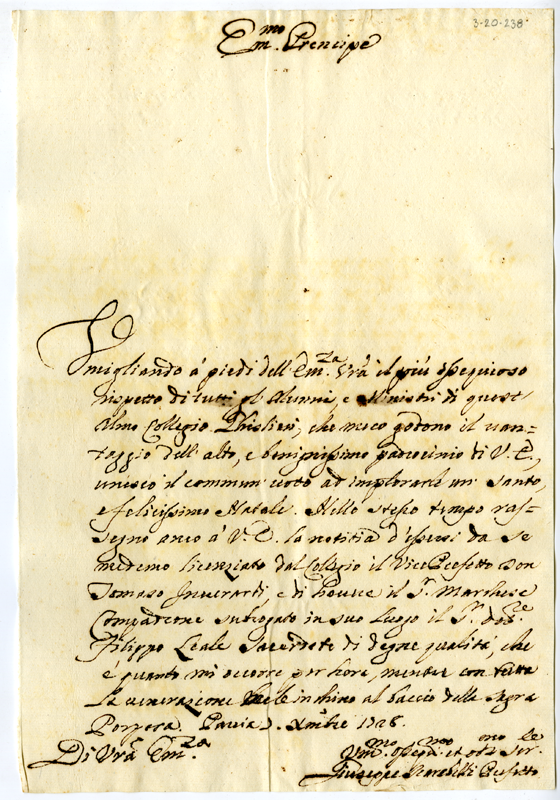 3-20-238
Em.mo Prencipe
Umigliando à piedi dell'Em.za Vrã il più ossequioso
rispetto di tutti gl'Alunni, e Ministri di quest'
Almo Collegio Ghislieri, che meco godono il van-
taggio dell'alto, e benignissimo patrocinio di V. E.,
unisco il commun voto ad implorarle un santo,
e felicissimo Natale. Nello stesso tempo ras-
segno anco à V. E. la notitia d'essersi da se
medemo licenziato dal Collegio il VicePrefetto Don
Tomaso Inverardi, e di havere il Sr. Marchese
Compadrone subrogato in suo luogo il Sr.
Filippo Leale Sacerdote di degne qualità, che
è quanto mi occorre per hora, mentre con tutta
la venerazione m'inchino al baccio della Sagra
Porpora. Pavia Xmbre 1728.
Di Vrã Em.za
Um.mo et obl. Ser.
Giuseppe Prefetto